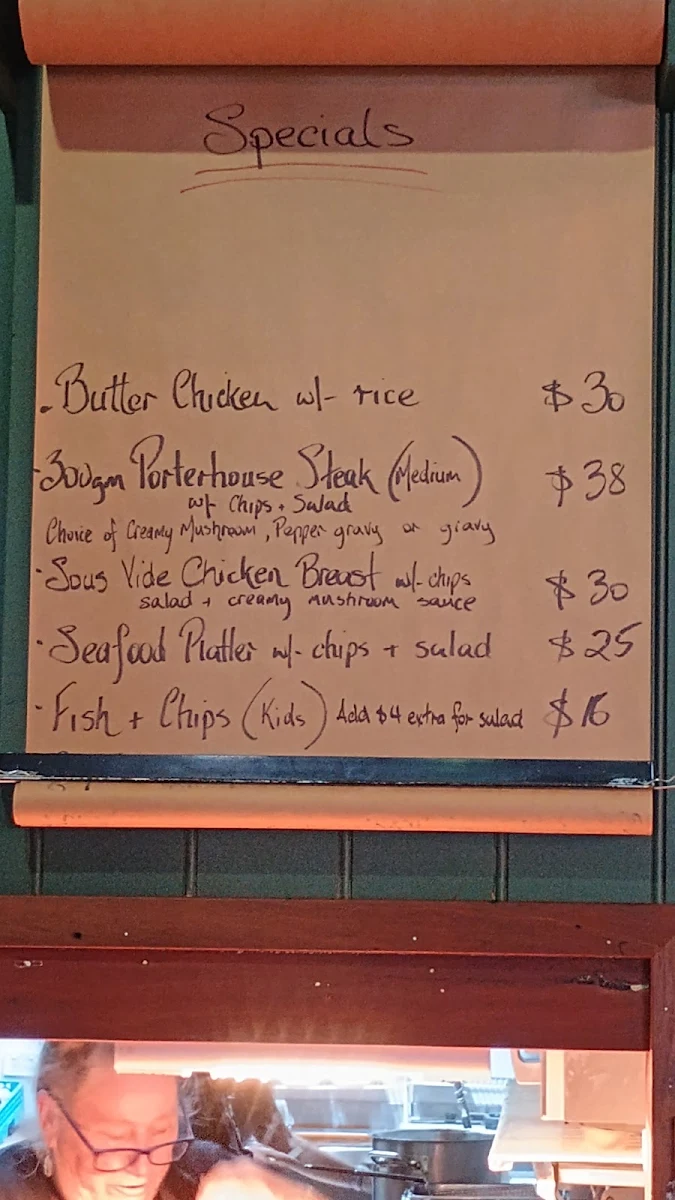 Specials
. Butter Chicken w/- rice $30
- 300gm Porterhouse Steak (Medium) $38
w/- Chips + Salad
Choice of Creamy Mushroom, Pepper gravy or gravy
· Sous Vide Chicken Breast w/- chips $30
salad + creamy mushroom sauce
· Seafood Platter w/- chips + salad $25
· Fish + Chips (Kids) Add $4 extra for salad $16